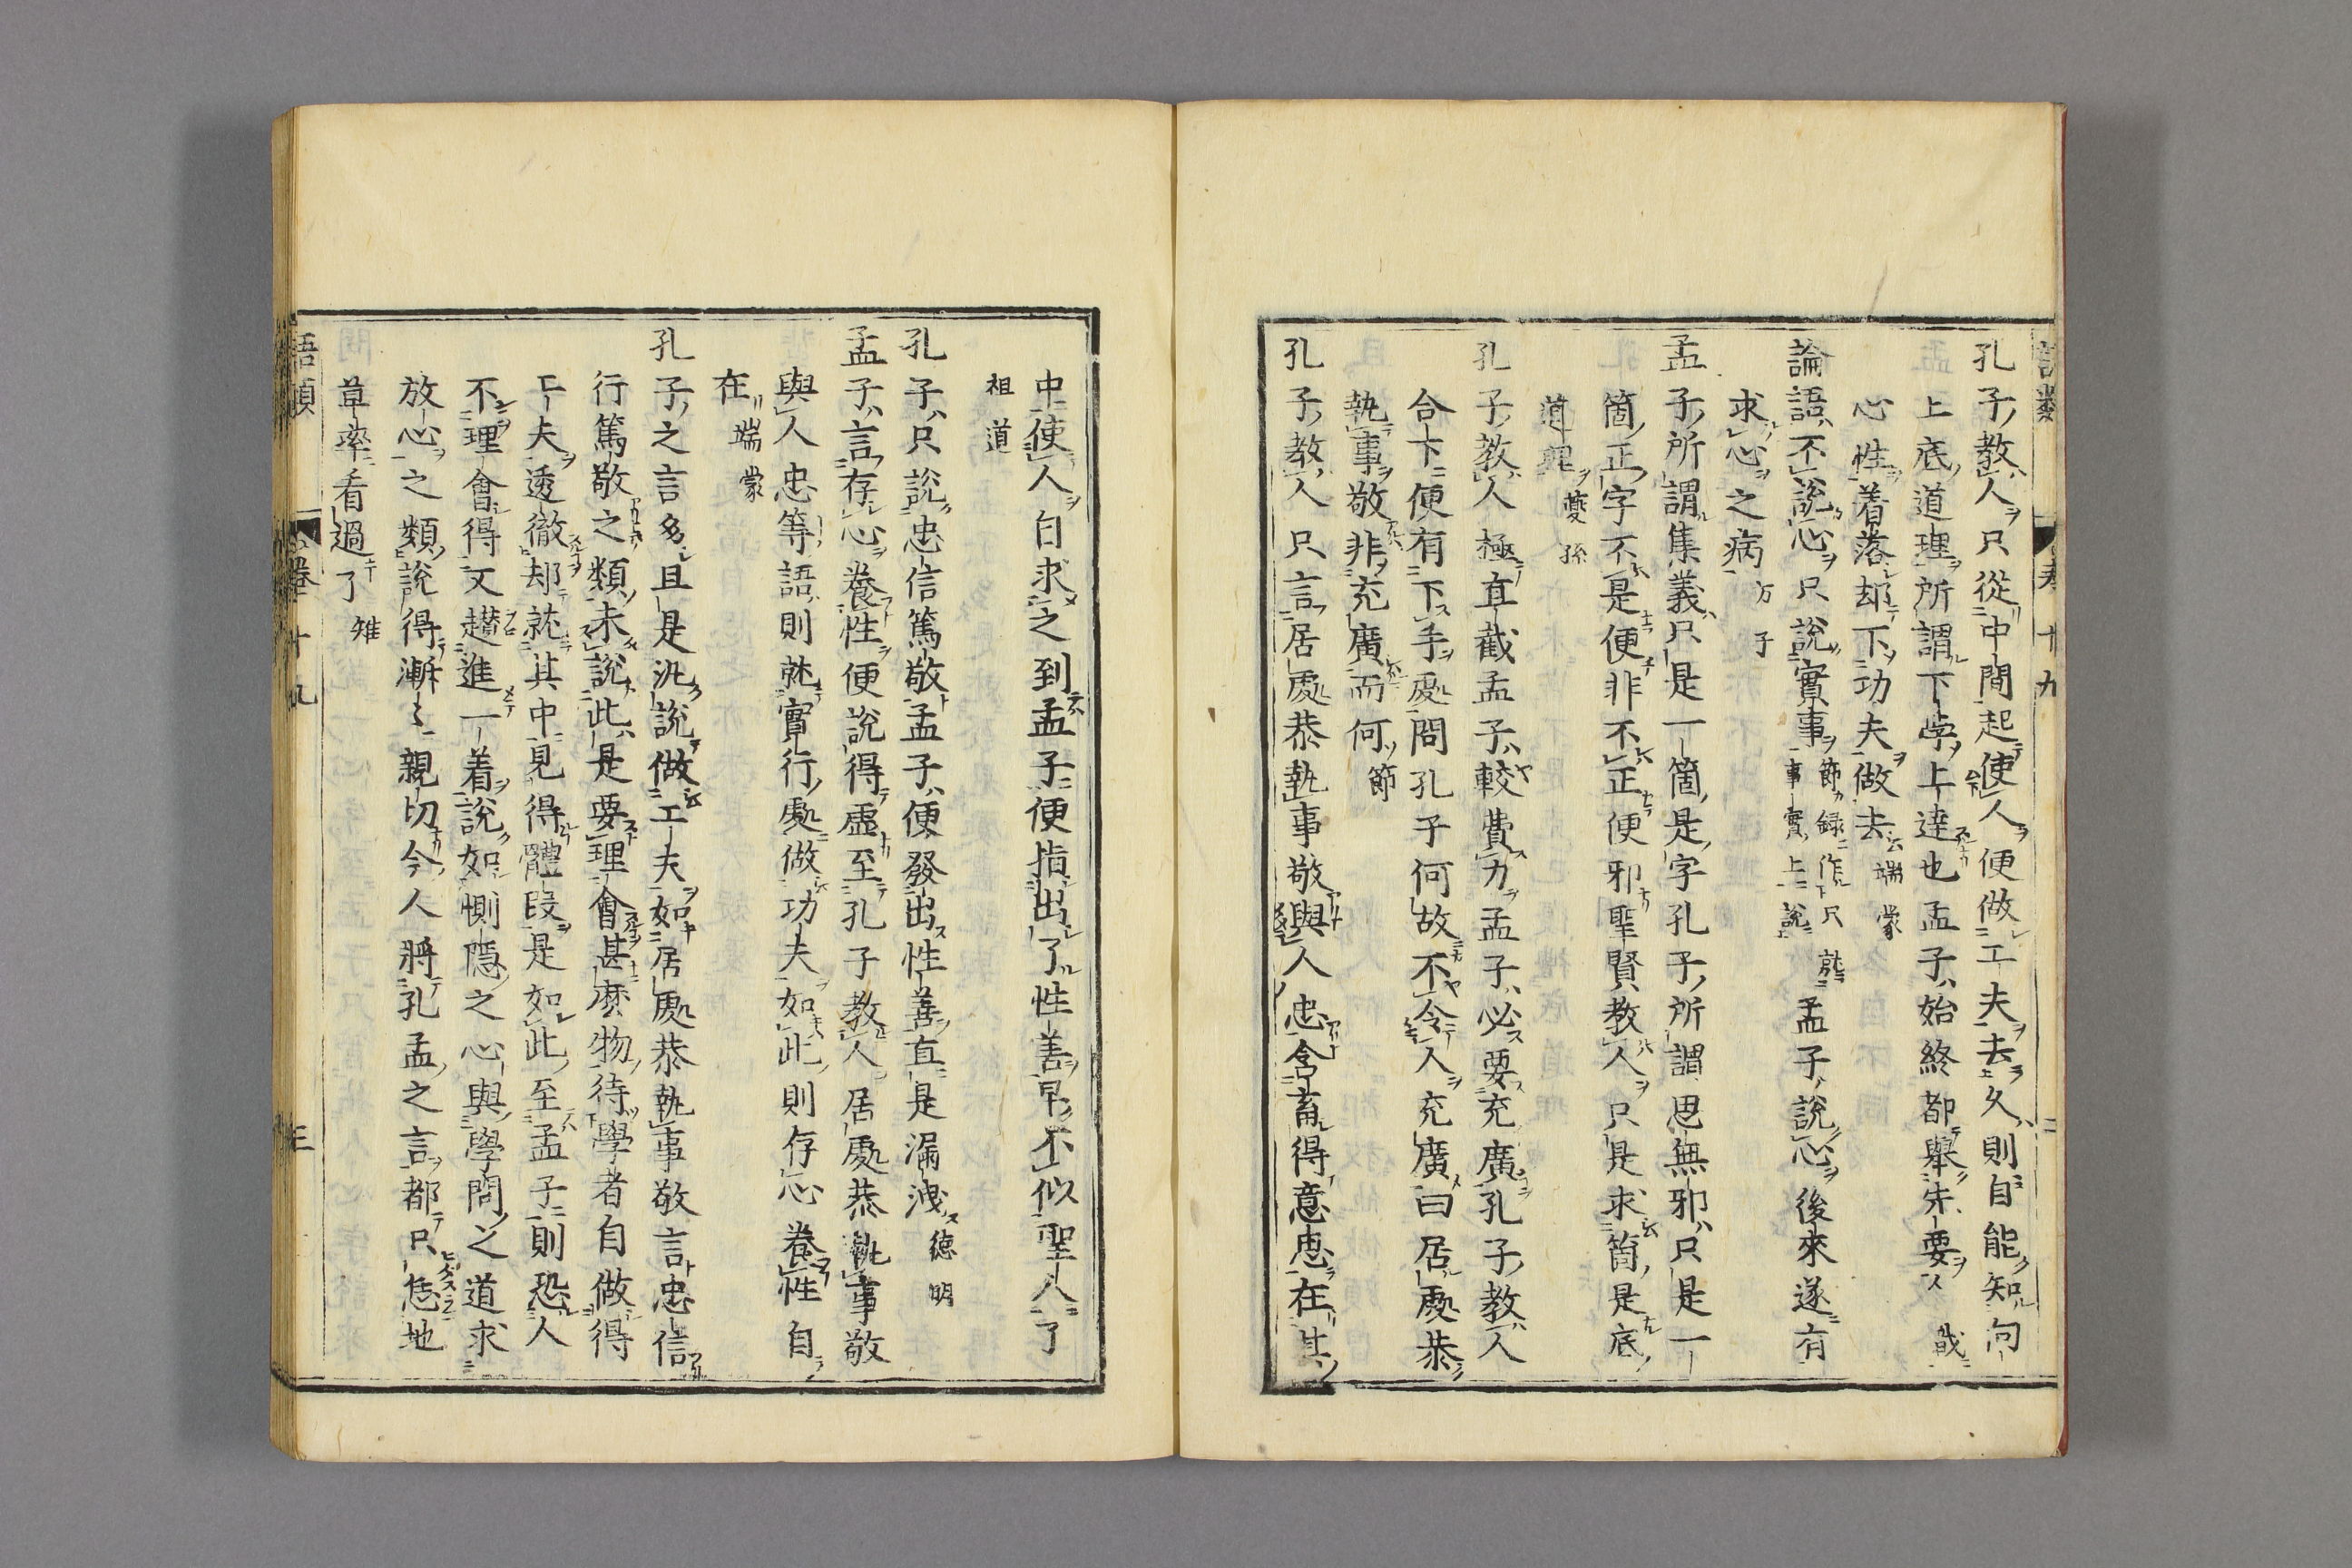 語類 卷十九 二
孔子教人只從中間起使人便做工夫去久則自能知向
上底道理所謂下學上達也孟子始終都舉先要識
心性着落却下功夫做去 端蒙
論語不說心只說實事 節錄作只就事實上說 孟子說心後來遂有
求心之病 方子
孟子所謂集義只是一箇是字孔子所謂思無邪只是一
箇正字不是便非不正便邪聖賢教人只是求箇是底
道理 夔孫
孔子教人極直截孟子較費力孟子必要充廣孔子教人
合下便有下手處問孔子何故不令人充廣曰居處恭
執事敬非充廣而何 節
孔子教人只言居處恭執事敬與人忠含畜得意思在其
中使人自求之到孟子便指出了性善早不似聖人了
祖道
孔子只說忠信篤敬孟子便發出性善直是漏洩 德明
孟子言存心養性便說得虛至孔子教人居處恭執事敬
與人忠等語則就實行處做功夫如此則存心養性自
在 端蒙
孔子之言多且是汎說做工夫如居處恭執事敬言忠信
行篤敬之類未說此是要理會甚麽物待學者自做得
工夫透徹却就其中見得體段是如此至孟子則恐人
不理會得又趲進一着說如惻隱之心與學問之道求
放心之類說得漸〻親切今人將孔孟之言都只恁地
草率看過了 雉
語類 卷十九 三